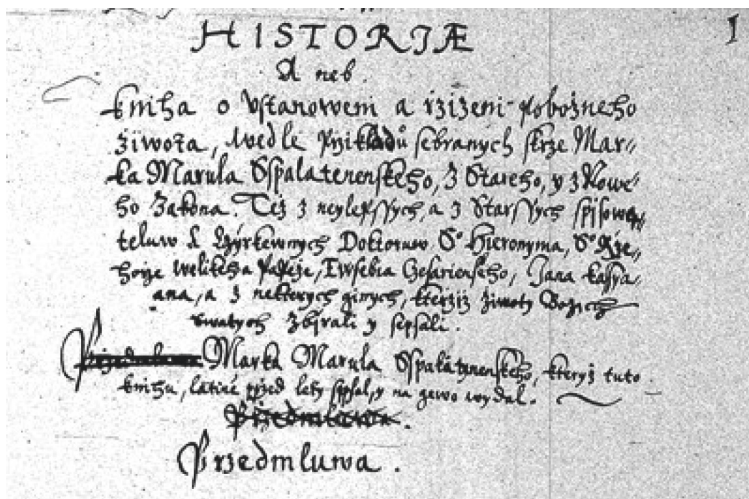 HISTORIÆ 1
A neb.
kniha o Vstanoweni a rzizeni pobozneho
ziwota, wedle Przikladů sebranych skrze Mar„
ka Marula Sspalatenskeho, z Stareho, y z Nowe„
ho Zakona. Tez z neylepssych, a z Starssych spisowa„
teluw Cyrkewnych Doktoruw S° Hieronyma, S° Rze„
horze welikeho Papeze, Ewsebia Cesarienskeho, Jana kassya„
ana, a z nekterych ginych, kterziz ziwoty Bozich
swatych zbirali y sepsali.
Marka Marula Sspalatenskeho, kteryz tuto
knihu, latine przed lety sepsal, y na gewo wydal.
Przedmluwa.
Przedmluwa.